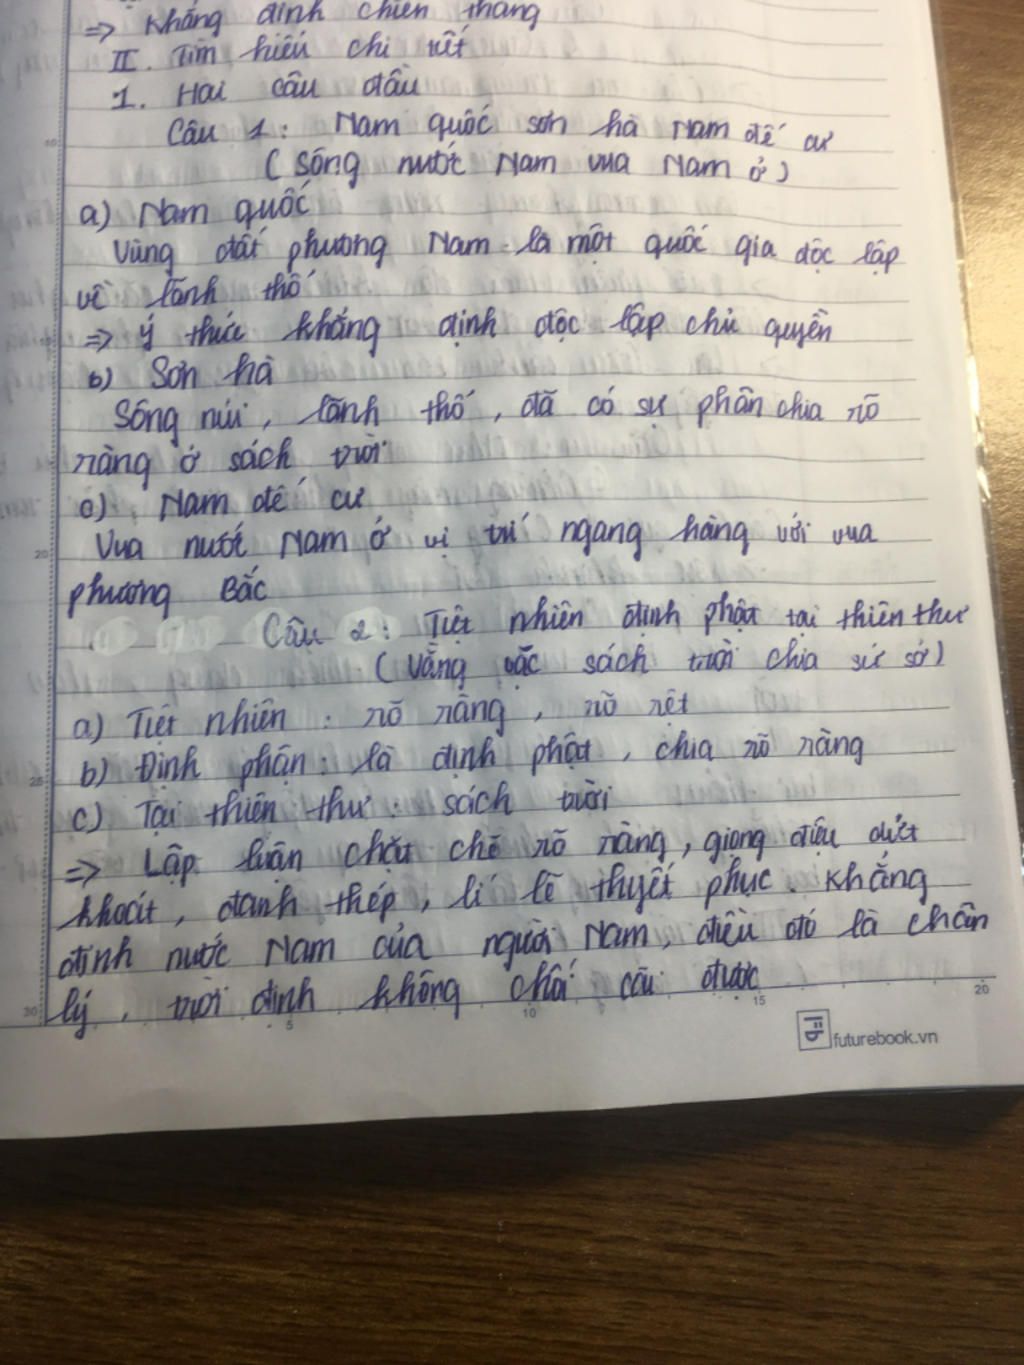 => Khẳng định chiến thắng
II. Tìm hiểu chi tiết
1. Hai câu đầu
Câu 1: Nam quốc sơn hà Nam đế cư
(Sông nước Nam vua Nam ở)
a) Nam quốc
Vùng đất phương Nam là một quốc gia độc lập
về lãnh thổ
=> ý thức khẳng định độc lập chủ quyền
b) Sơn hà
Sông núi, lãnh thổ, đã có sự phân chia rõ
ràng ở sách trời
c) Nam đế cư
Vua nước Nam ở vị trí ngang hàng với vua
phương Bắc
Câu 2: Tiệt nhiên định phận tại thiên thư
(Vằng vặc sách trời chia sứ sở)
a) Tiệt nhiên: rõ ràng, rõ rệt
b) Định phận: là định phận, chia rõ ràng
c) Tại thiên thư: sách trời
=> Lập luận chặt chẽ rõ ràng, giọng điệu dứt
khoát, đanh thép, lí lẽ thuyết phục. Khẳng
định nước Nam của người Nam, điều đó là chân
lý, trời định không chối cãi được
10
20
25
30 5 10 15 20
futurebook.vn